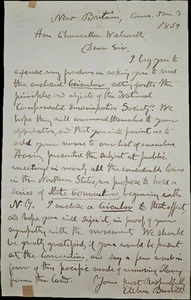 New Britain, Conn. Jan. 3
1859
Hon Chancellor Walworth
Dear Sir,
I beg you to
excuse my freedom in asking you to read
the enclosed Circular setting forth the
principles and objects of the National
Compensated Emancipation Society. We
hope they will commend themselves to your
approbation, and that you will permit us to
add your name to our list of members.
Having presented the subject at public
meetings in nearly all the considerable towns
in the Northern States, we propose to hold a
series of State Conventions beginning with
N.Y. I enclose a Circular to that effect
as hope you will sign it, in proof of your
sympathy with the movement. We should
be greatly gratified, if you would be present
at the Convention, and say a few words in
favor of this specific mode of removing slavery
from this land.
Yours most respectfully
Elihu Burritt